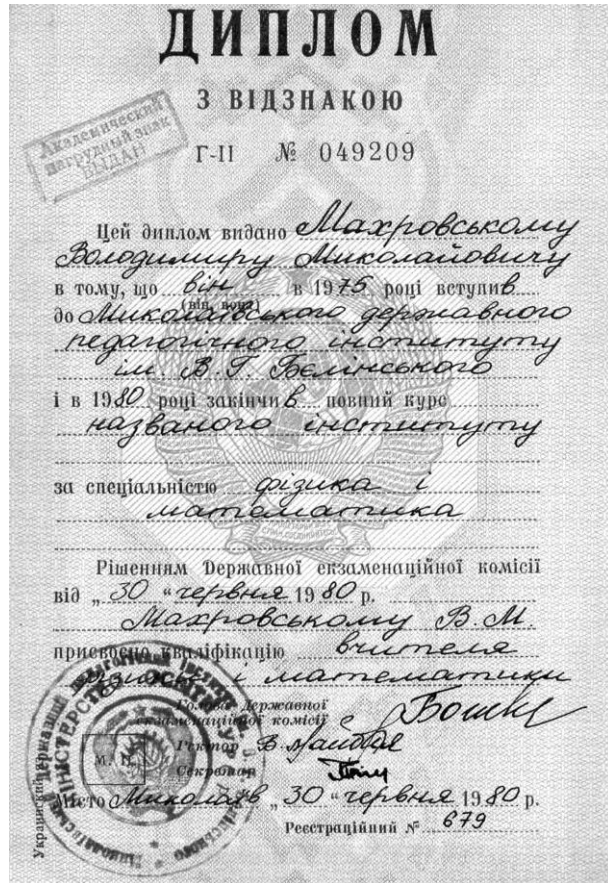 ДИПЛОМ
З ВІДЗНАКОЮ
Академический
нагрудный знак
ВЫДАН
Г-II № 049209
Цей диплом видано Махровському
Володимиру Миколайовичу
в тому, що він в 1975 році вступив
(він, вона)
до Миколаївського державного
педагогічного інституту
ім. В. Г. Бєлінського
і в 1980 році закінчив повний курс
названого інституту
за спеціальністю фізика і
математика
Рішенням Державної екзаменаційної комісії
від „ 30 “ червня 1980 р.
Махровському В. М.
присвоєно кваліфікацію вчителя
фізики і математики
Голова Державної
екзаменаційної комісії
Ректор
Секретар
М. П.
Місто Миколаїв „ 30 “ червня 1980 р.
Реєстраційний № 679